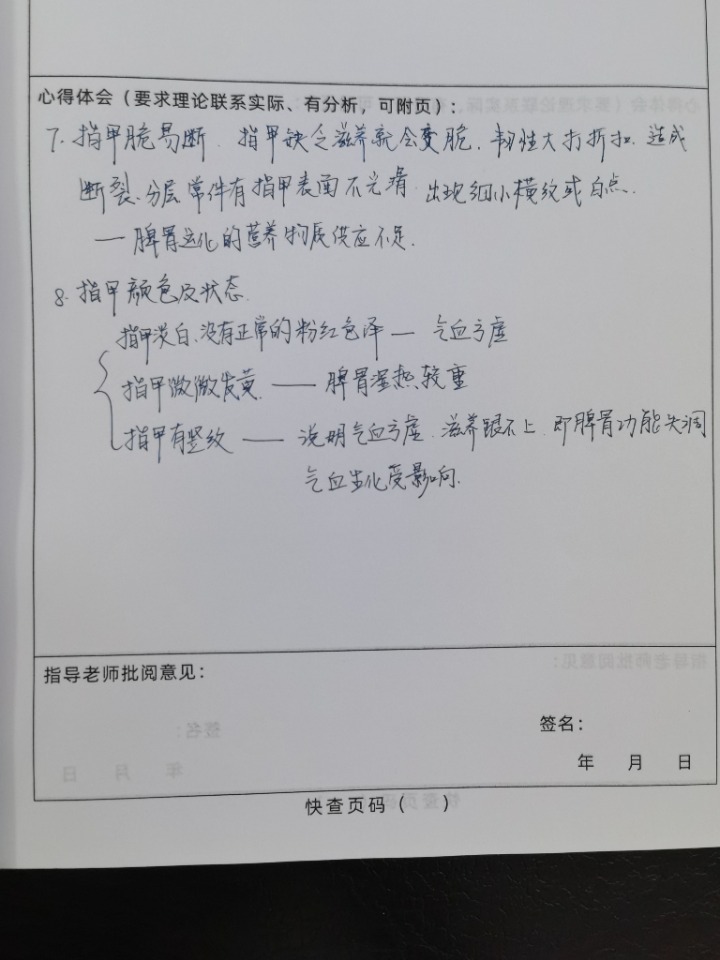 心得体会（要求理论联系实际、有分析，可附页）:
7. 指甲脆易断. 指甲缺乏滋养就会变脆. 韧性大打折扣. 造成
断裂、分层 常伴有指甲表面不光滑. 出现细小横纹或白点.
— 脾胃运化的营养物质供应不足.
8. 指甲颜色及状态.
指甲淡白、没有正常的粉红色泽 — 气血亏虚
指甲微微发黄. — 脾胃湿热较重
指甲有竖纹 — 说明气血亏虚. 滋养跟不上. 即脾胃功能失调
气血生化受影响.
指导老师批阅意见:
签名:
年 月 日
快查页码（ ）